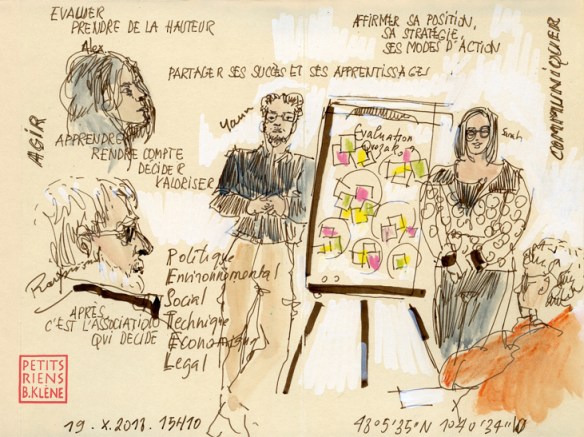 EVALUER
PRENDRE DE LA HAUTEUR
Alex
AFFIRMER SA POSITION,
SA STRATÉGIE,
SES MODES D'ACTION
PARTAGER SES SUCCÈS ET SES APPRENTISSAGES
AGIR
COMMUNIQUER
Yann
Evaluation
Sarah
APPRENDRE
RENDRE COMPTE
DÉCIDER
VALORISER
Politique
Environnemental
Social
Technique
Économique
Legal
APRÈS
C'EST L'ASSOCIATION
QUI DÉCIDE
PETITS
RIENS
B.KLÈNE
19.X.2018. 15H10
43°5'35"N 1°40'34"W